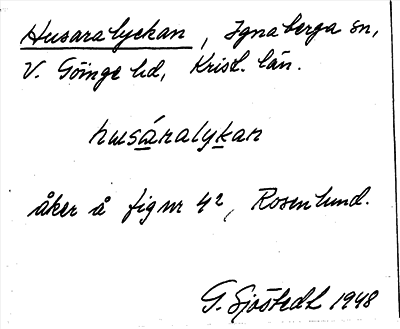 Husaralyckan, Ignaberga sn,
V. Göinge hd, Krist. län.
husáralykan
åker å fig nr 4², Rosenlund.
G. Sjöstedt 1948